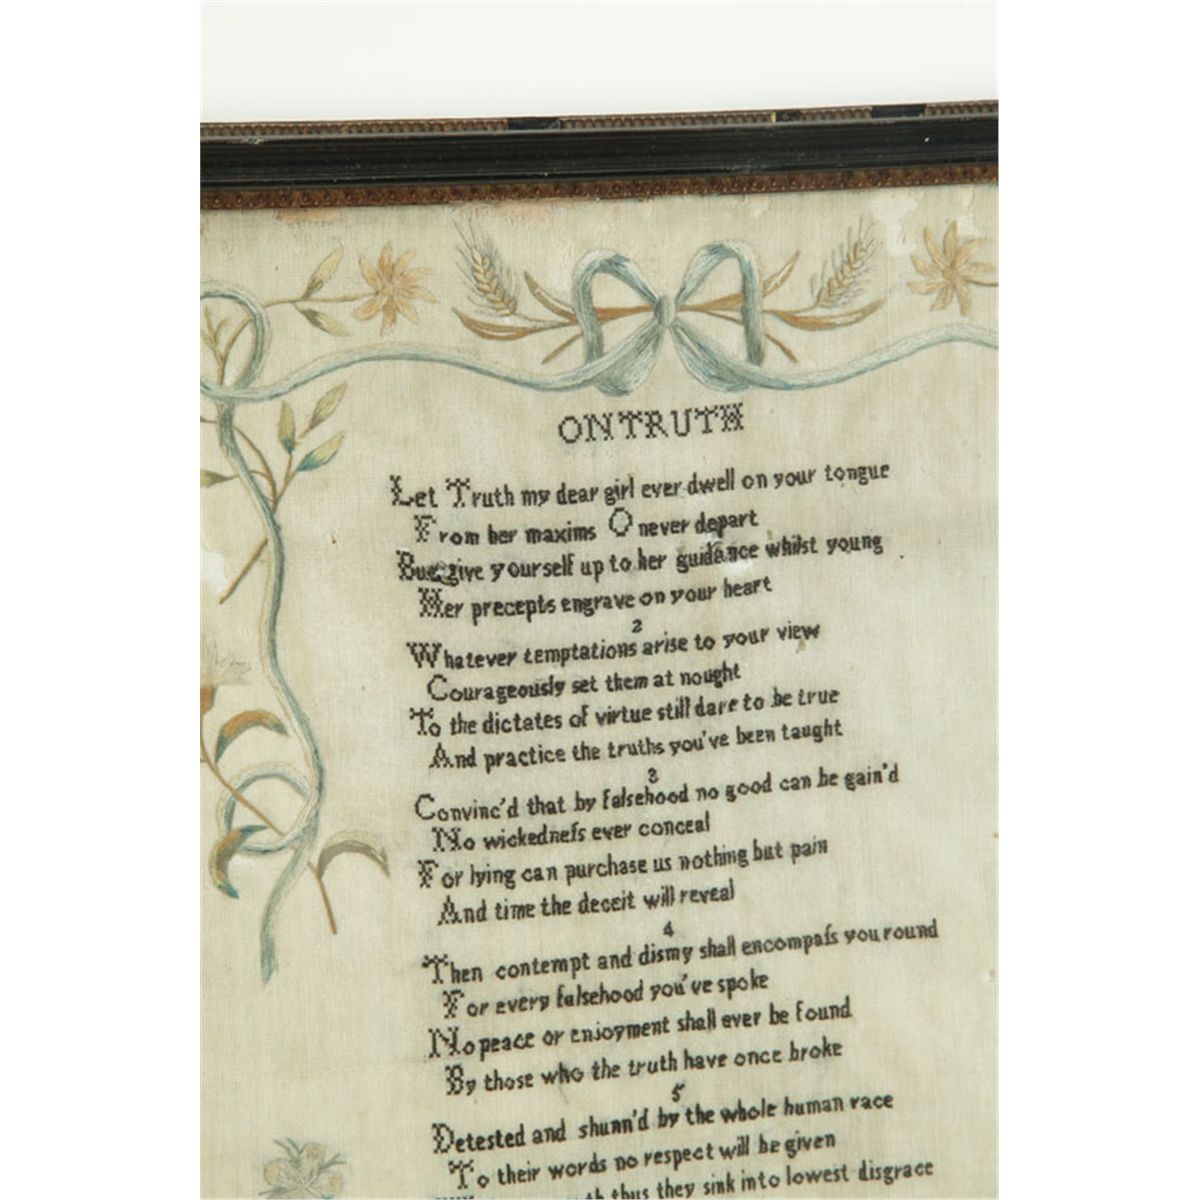 ON TRUTH
Let Truth my dear girl ever dwell on your tongue
From her maxims O never depart
But give yourself up to her guidance whilst young
Her precepts engrave on your heart
2
Whatever temptations arise to your view
Courageously set them at nought
To the dictates of virtue still dare to be true
And practice the truths you've been taught
3
Convinc'd that by falsehood no good can be gain'd
No wickedneſs ever conceal
For lying can purchase us nothing but pain
And time the deceit will reveal
4
Then contempt and dismy shall encompaſs you round
For every falsehood you've spoke
No peace or enjoyment shall ever be found
By those who the truth have once broke
5
Detested and shunn'd by the whole human race
To their words no respect will be given
thus they sink into lowest disgrace